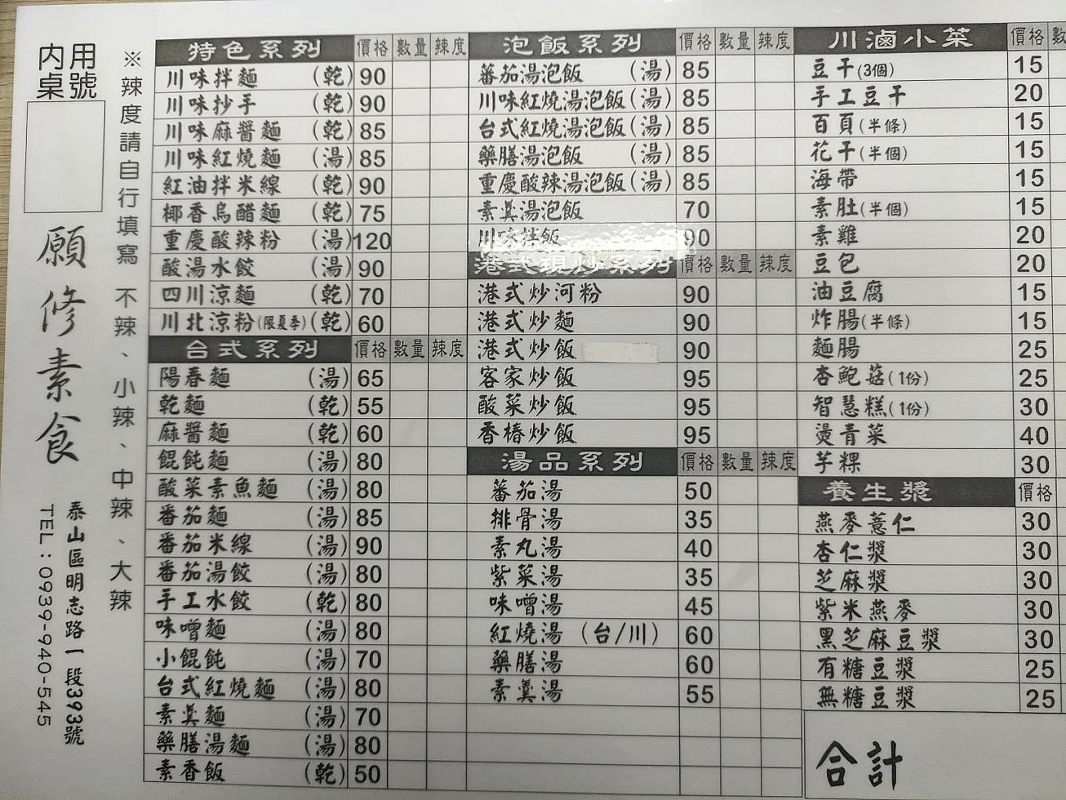 內用
桌號
願修素食
泰山區明志路一段393號
TEL：0939-940-545
※辣度請自行填寫 不辣、小辣、中辣、大辣
特色系列 價格 數量 辣度
川味拌麵 (乾) 90
川味抄手 (乾) 90
川味麻醬麵 (乾) 85
川味紅燒麵 (湯) 85
紅油拌米線 (乾) 90
椰香烏醋麵 (乾) 75
重慶酸辣粉 (湯) 120
酸湯水餃 (湯) 90
四川涼麵 (湯) 70
川北涼粉(限夏季) (乾) 60
台式系列 價格 數量 辣度
陽春麵 (湯) 65
乾麵 (乾) 55
麻醬麵 (乾) 60
餛飩麵 (湯) 80
酸菜素魚麵 (湯) 80
番茄麵 (湯) 85
番茄米線 (湯) 90
番茄湯餃 (湯) 80
手工水餃 (乾) 80
味噌麵 (湯) 80
小餛飩 (湯) 70
台式紅燒麵 (湯) 80
素羹麵 (湯) 70
藥膳湯麵 (湯) 80
素香飯 (乾) 50
泡飯系列 價格 數量 辣度
蕃茄湯泡飯 (湯) 85
川味紅燒湯泡飯(湯) 85
台式紅燒湯泡飯(湯) 85
藥膳湯泡飯 (湯) 85
重慶酸辣湯泡飯(湯) 85
素羹湯泡飯 70
川味拌飯 90
港式現炒系列 價格 數量 辣度
港式炒河粉 90
港式炒麵 90
港式炒飯 90
客家炒飯 95
酸菜炒飯 95
香椿炒飯 95
湯品系列 價格 數量 辣度
蕃茄湯 50
排骨湯 35
素丸湯 40
紫菜湯 35
味噌湯 45
紅燒湯 (台/川) 60
藥膳湯 60
素羹湯 55
川滷小菜 價格 數
豆干(3個) 15
手工豆干 20
百頁(半條) 15
花干(半個) 15
海帶 15
素肚(半個) 15
素雞 20
豆包 20
油豆腐 15
炸腸(半條) 15
麵腸 25
杏鮑菇(1份) 25
智慧糕(1份) 30
燙青菜 40
芋粿 30
養生漿 價格
燕麥薏仁 30
杏仁漿 30
芝麻漿 30
紫米燕麥 30
黑芝麻豆漿 30
有糖豆漿 25
無糖豆漿 25
合計